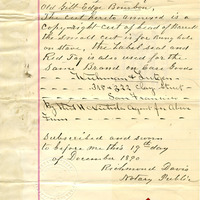 Old Gilt Edge Bourbon.
The Cut hereto annexed is a
Copyright Cut of head of Barrel
the Small Cut is for Bung hole
or stave, the Label seal and
Red Tag is also used for the
Same Brand on Case Goods
Wichman &
318 & 322 Clay Street
San Francisco
By
Firm
Subscribed and sworn
to before me this 19th day
of December 1890
Richmond Davis
Notary Public